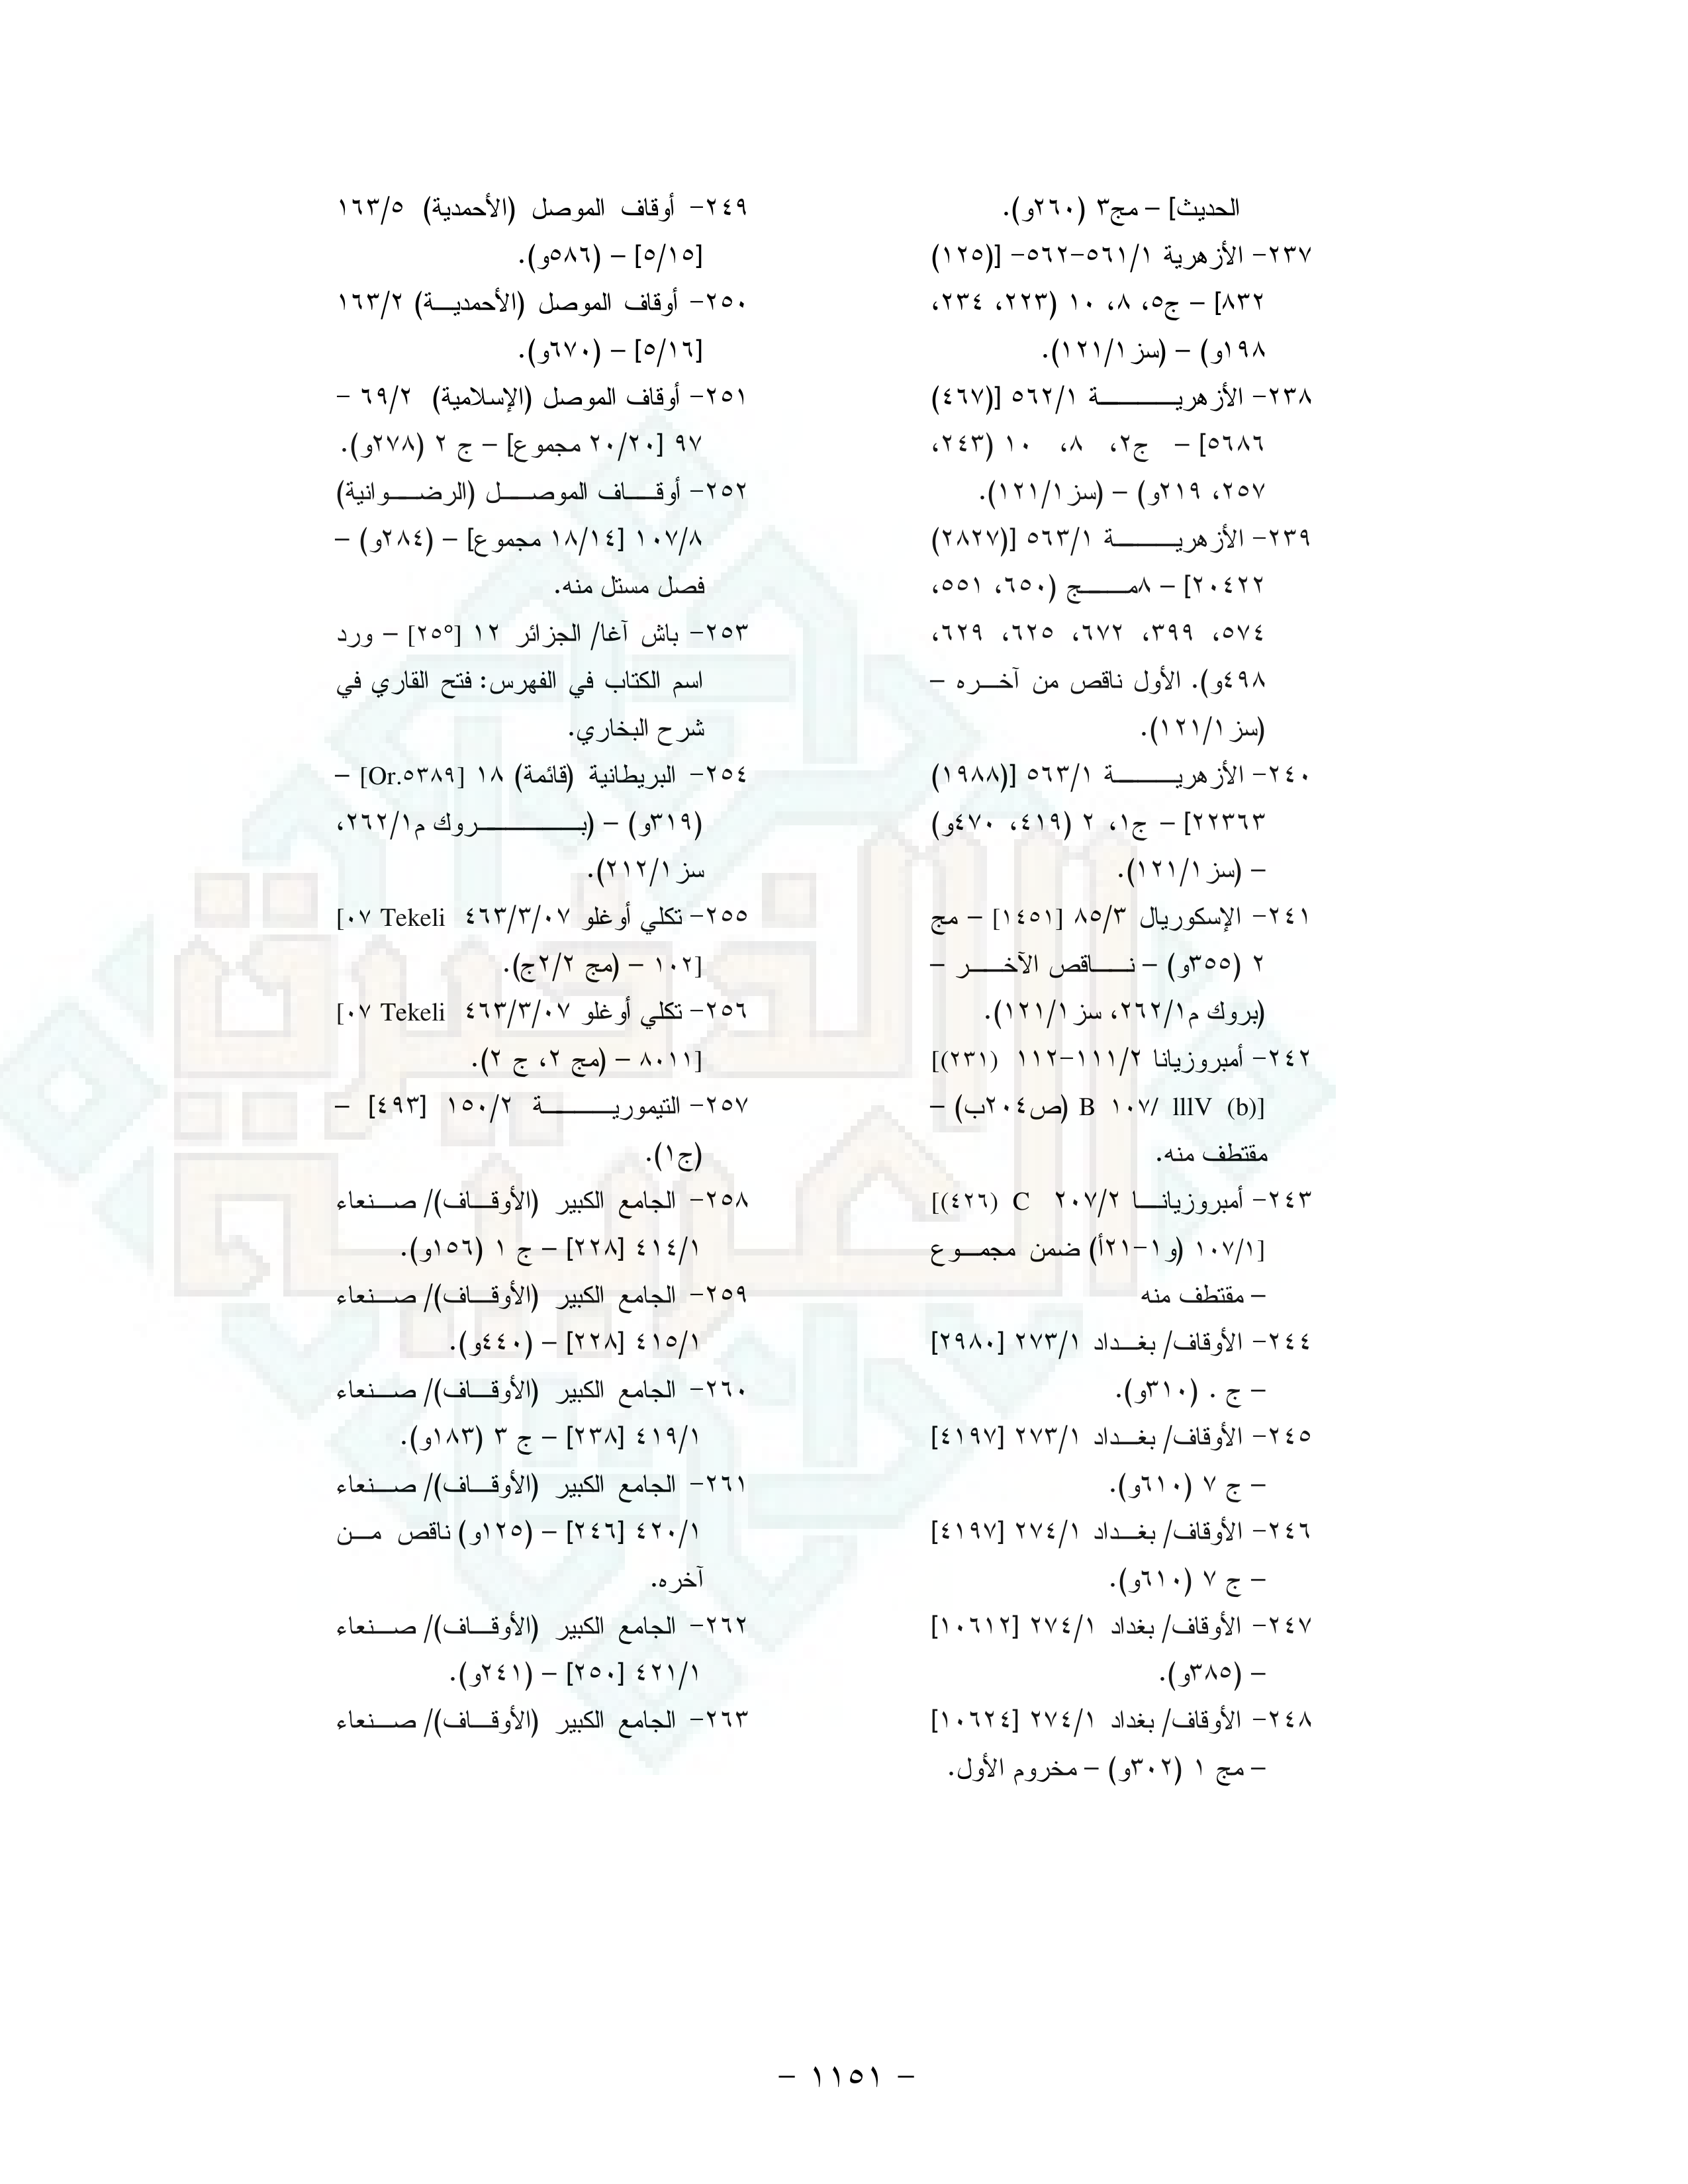 الحديث] – مج٣ (٢٦٠و).
٢٣٧- الأزهرية ٥٦١/١-٥٦٢- [(١٢٥)
٨٣٢] – ج٥، ٨، ١٠ (٢٢٣، ٢٣٤،
١٩٨و) – (سز١٢١/١).
٢٣٨- الأزهرية ٥٦٢/١ [(٤٦٧)
٥٦٨٦] – ج٢، ٨، ١٠ (٢٤٣،
٢٥٧، ٢١٩و) – (سز١٢١/١).
٢٣٩- الأزهرية ٥٦٣/١ [(٢٨٢٧)
٢٠٤٢٢] – ٨مج (٦٥٠، ٥٥١،
٥٧٤، ٣٩٩، ٦٧٢، ٦٢٥، ٦٢٩،
٤٩٨و). الأول ناقص من آخره –
(سز١٢١/١).
٢٤٠- الأزهرية ٥٦٣/١ [(١٩٨٨)
٢٢٣٦٣] – ج١، ٢ (٤١٩، ٤٧٠و)
– (سز١٢١/١).
٢٤١- الإسكوريال ٨٥/٣ [١٤٥١] – مج
٢ (٣٥٥و) – ناقص الآخر –
(بروك م٢٦٢/١، سز١٢١/١).
٢٤٢- أمبروزيانا ١١١/٢-١١٢ (٢٣١)]
[B ١٠٧/ lllV (b) (ص٢٠٤ب) –
مقتطف منه.
٢٤٣- أمبروزيانا ٢٠٧/٢ C (٤٢٦)]
[١٠٧/١ (و١-٢١أ) ضمن مجموع
– مقتطف منه
٢٤٤- الأوقاف/ بغداد ٢٧٣/١ [٢٩٨٠]
– ج . (٣١٠و).
٢٤٥- الأوقاف/ بغداد ٢٧٣/١ [٤١٩٧]
– ج ٧ (٦١٠و).
٢٤٦- الأوقاف/ بغداد ٢٧٤/١ [٤١٩٧]
– ج ٧ (٦١٠و).
٢٤٧- الأوقاف/ بغداد ٢٧٤/١ [١٠٦١٢]
– (٣٨٥و).
٢٤٨- الأوقاف/ بغداد ٢٧٤/١ [١٠٦٢٤]
– مج ١ (٣٠٢و) – مخروم الأول.
٢٤٩- أوقاف الموصل (الأحمدية) ١٦٣/٥
[٥/١٥] – (٥٨٦و).
٢٥٠- أوقاف الموصل (الأحمدية) ١٦٣/٢
[٥/١٦] – (٦٧٠و).
٢٥١- أوقاف الموصل (الإسلامية) ٦٩/٢ -
٩٧ [٢٠/٢٠ مجموع] – ج ٢ (٢٧٨و).
٢٥٢- أوقاف الموصل (الرضوانية)
١٠٧/٨ [١٨/١٤ مجموع] – (٢٨٤و) –
فصل مستل منه.
٢٥٣- باش آغا/ الجزائر ١٢ [٢٥°] – ورد
اسم الكتاب في الفهرس: فتح القاري في
شرح البخاري.
٢٥٤- البريطانية (قائمة) ١٨ [Or.٥٣٨٩] –
(٣١٩و) – (بروك م٢٦٢/١،
سز٢١٢/١).
٢٥٥- تكلي أوغلو ٤٦٣/٣/٠٧ ٠٧ Tekeli]
[١٠٢ – (مج ٢/٢ج).
٢٥٦- تكلي أوغلو ٤٦٣/٣/٠٧ ٠٧ Tekeli]
[٨٠١١ – (مج ٢، ج ٢).
٢٥٧- التيمورية ١٥٠/٢ [٤٩٣] –
(ج١).
٢٥٨- الجامع الكبير (الأوقاف)/ صنعاء
٤١٤/١ [٢٢٨] – ج ١ (١٥٦و).
٢٥٩- الجامع الكبير (الأوقاف)/ صنعاء
٤١٥/١ [٢٢٨] – (٤٤٠و).
٢٦٠- الجامع الكبير (الأوقاف)/ صنعاء
٤١٩/١ [٢٣٨] – ج ٣ (١٨٣و).
٢٦١- الجامع الكبير (الأوقاف)/ صنعاء
٤٢٠/١ [٢٤٦] – (١٢٥و) ناقص من
آخره.
٢٦٢- الجامع الكبير (الأوقاف)/ صنعاء
٤٢١/١ [٢٥٠] – (٢٤١و).
٢٦٣- الجامع الكبير (الأوقاف)/ صنعاء
– ١١٥١ –